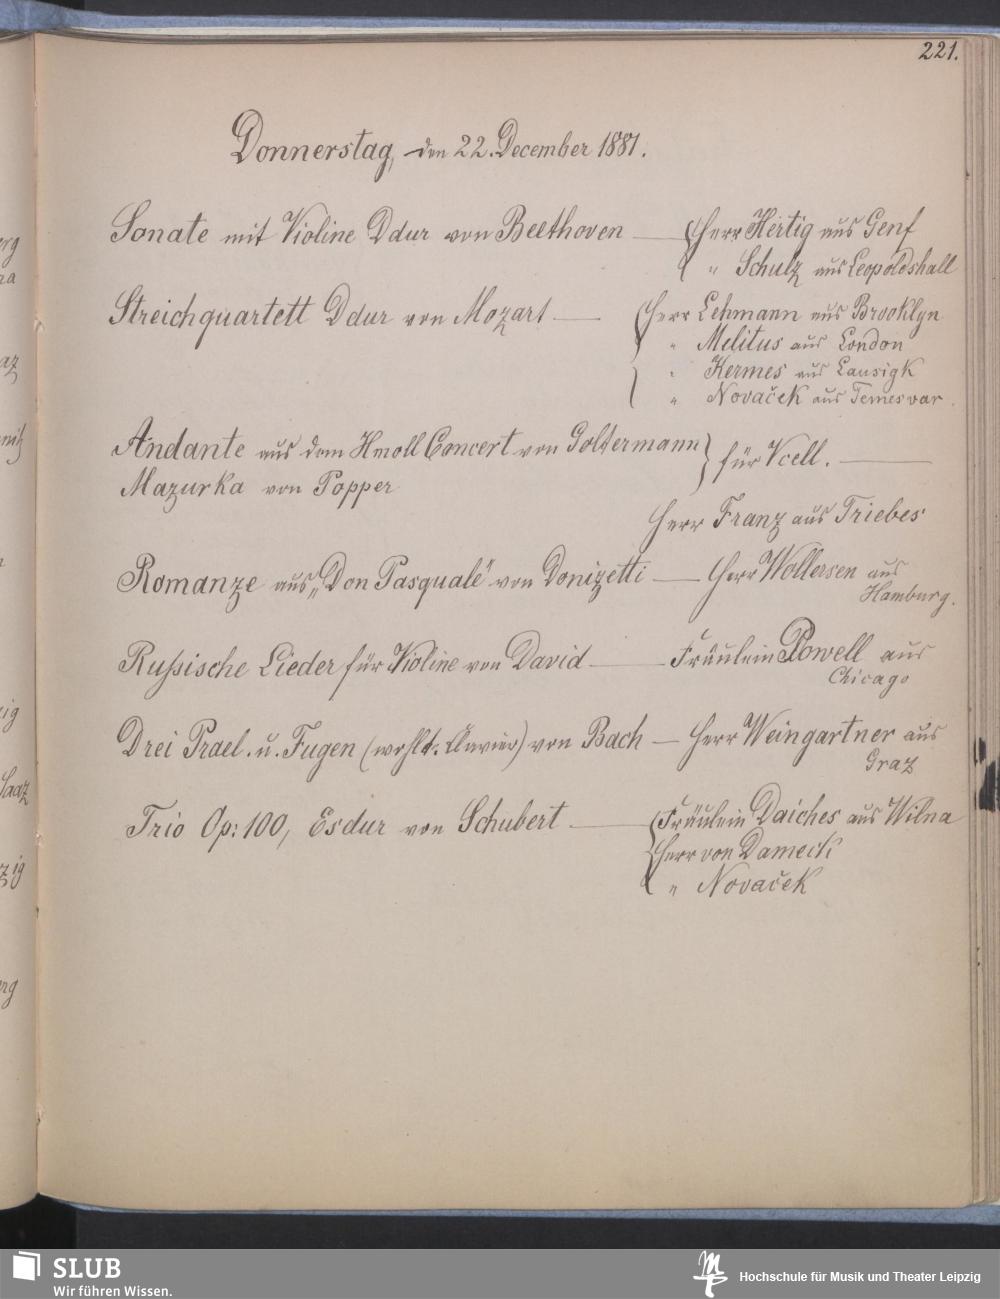 221.
Donnerstag, den 22. December 1881.
Sonate mit Violine Ddur von Beethoven — Herr Hertig aus Genf
" Schulz aus Leopoldshall
Streichquartett Ddur von Mozart — Herr Lehmann aus Brooklyn
" Melitus aus London
" Kermes aus Lausigk
" Novaček aus Temesvar.
Andante aus dem Hmoll Concert von Goltermann } für Vcell. —
Mazurka von Popper
Herr Franz aus Triebes
Romanze aus „Don Pasquale" von Donizetti — Herr Wollersen aus
Hamburg.
Russische Lieder für Violine von David — Fräulein Powell aus
Chicago
Drei Prael. u. Fugen (wohlt. Clavier) von Bach — Herr Weingartner aus
Graz
Trio Op: 100, Esdur von Schubert — Fräulein Daiches aus Wilna
Herr von Dameck
" Novaček
SLUB
Wir führen Wissen.
Hochschule für Musik und Theater Leipzig